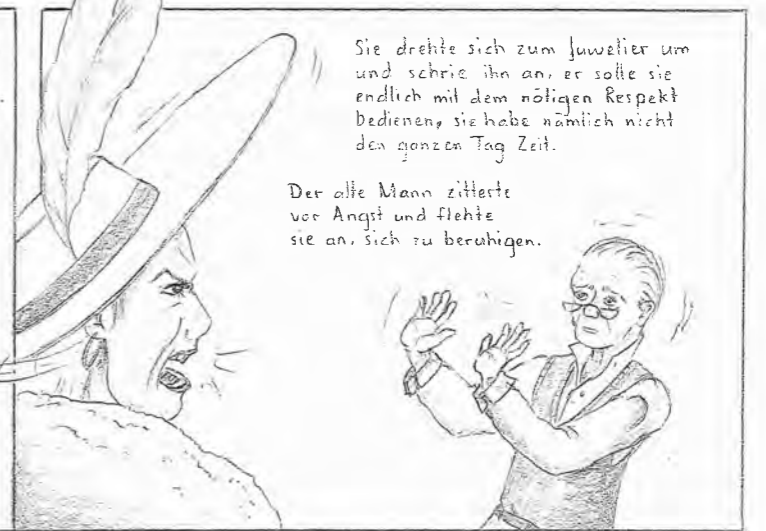 Sie drehte sich zum Juwelier um
und schrie ihn an, er solle sie
endlich mit dem nötigen Respekt
bedienen, sie habe nämlich nicht
den ganzen Tag Zeit.
Der alte Mann zitterte
vor Angst und flehte
sie an, sich zu beruhigen.